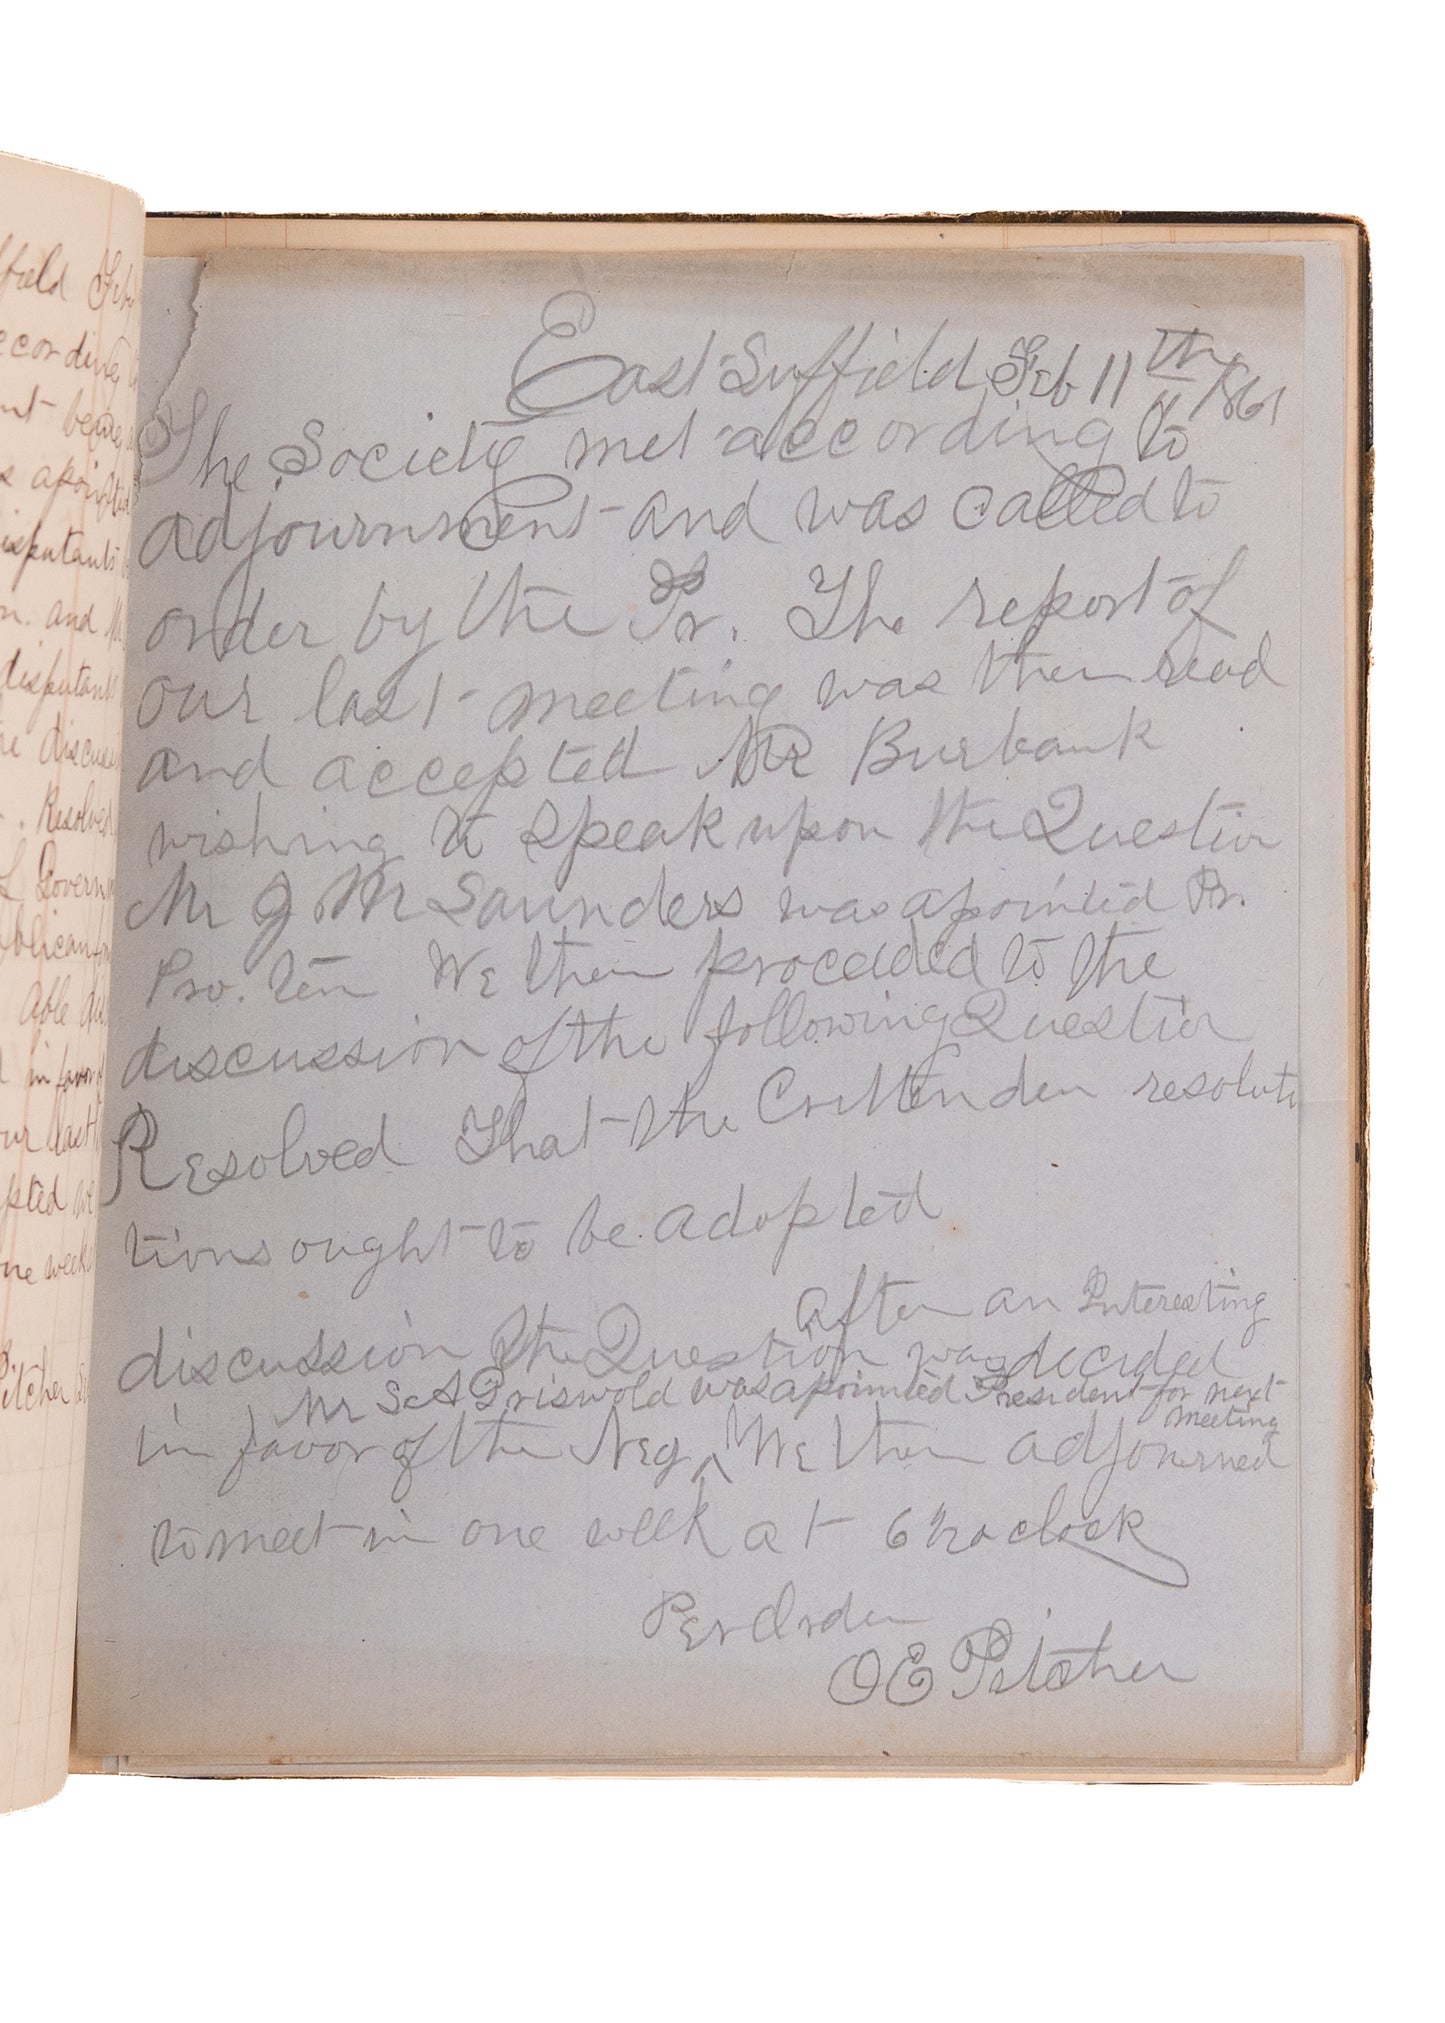 ffield Feb
ccording
nt being
s apointed
isputants
n. and M
disputants
he discussi
. Resolved
of Governm
ublican for
able dis
d in favor of
our last
pted We
one weeks
Pitcher Se
East Suffield Feb 11th 1861
The Society met according to
adjournment and was called to
order by the Pr. The report of
our last meeting was then read
and accepted Mr Burbank
wishing to speak upon the Question
Mr J M Saunders was apointed Pr.
Pro. tem We then proceeded to the
discussion of the following Question
Resolved That the Crittenden resolu
tions ought to be adopted
After an Interesting
discussion the Question was decided
Mr S A Griswold was apointed President for next
meeting
in favor of the Neg ^ We then adjourned
to meet in one week at 6 ½ oclock
Per Order
O E Pitcher